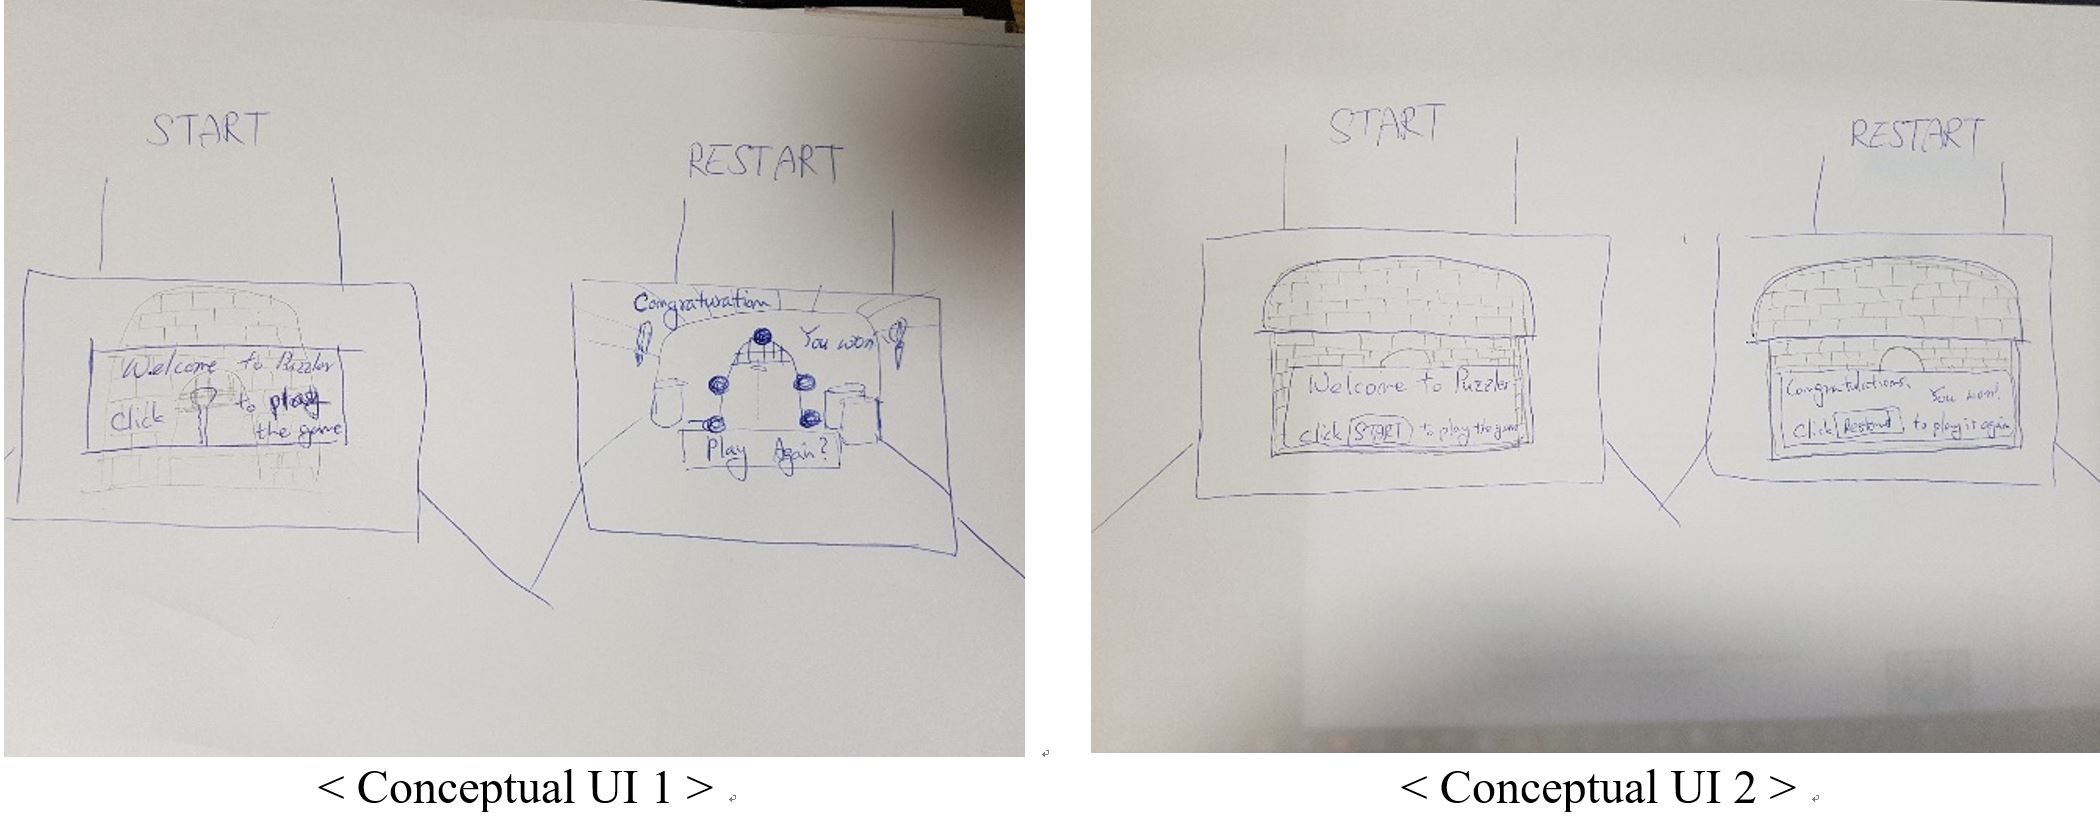 START
RESTART
Welcome to Puzzler
Click to play
the game
Congraturation!
You won
Play Again?
< Conceptual UI 1 >
START
RESTART
Welcome to Puzzler
Click START to play the game
Congratulations.
You won!
Click Restart to play it again
< Conceptual UI 2 >